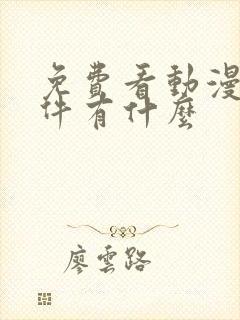 免費看動漫
件有什麼
廖雲路